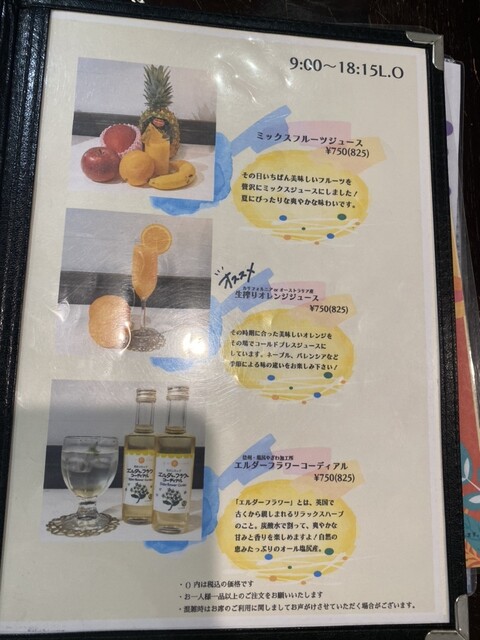 9:00～18:15L.O
ミックスフルーツジュース
¥750(825)
その日いちばん美味しいフルーツを
贅沢にミックスジュースにしました！
夏にぴったりな爽やかな味わいです。
オススメ
カリフォルニア or オーストラリア産
生搾りオレンジジュース
¥750(825)
その時期に合った美味しいオレンジを
その場でコールドプレスジュースに
しています。ネーブル、バレンシアなど
季節による味の違いをお楽しみ下さい！
エルダーフラワー
コーディアル
エルダーフラワー
コーディアル
エルダーフラワーコーディアル
¥750(825)
「エルダーフラワー」とは、英国で
古くから親しまれるリラックスハーブ
のこと。炭酸水で割って、爽やかな
甘みと香りを楽しめますよ！自然の
恵みたっぷりのオール塩尻産。
・()内は税込の価格です
・お一人様一品以上のご注文をお願いいたします
・混雑時はお席のご利用に関しましてお声がけさせていただく場合がございます。